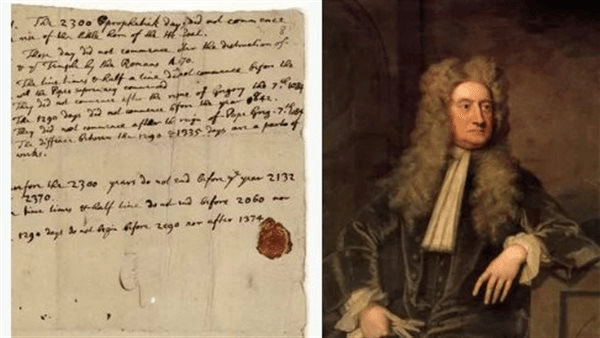 The 2300 prophetick days did not commence
rise of the little horn of the He Goat.
8
Those day did not commence after the destruction of
& ye Temple by the Romans A.70.
The time times & half a time did not commence before the
the Pope supremacy commenced
They did not commence after the reigne of Gregory the 7th 1084
The 1290 days did not commence before the year 842.
They did not commence after the reign of Pope Greg. 7th 1084
The diffence between the 1290 & 1335 days are a parts of
works.
the 2300 years do not end before ye year 2132
2370.
time times & half time do not end before 2060 nor
1290 days do not begin before 2090 nor after 1374